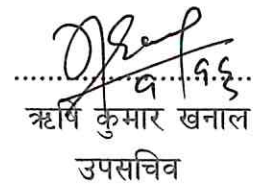 ९/१६
ऋषि कुमार खनाल
उपसचिव